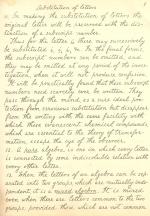 Substitution of letters
In making the substitution of letters the
original letter will be preserved with the dis-
tinction of a subscript number.
Thus for the letter          there may successively
be substituted                          In the final forms
the subscript numbers can be omitted, and
they may be omitted at any period of the inves-
tigation, when it will not produce confusion.
It will be practically found that these subscript
numbers need scarcely ever be written. They
pass through the mind, as a sure ideal pro-
tection from erroneous substitution, but disappear
from the writing with the same facility with
which those evanescent chemical compounds,
which are essential to the theory of transfor-
mation, escape the eye of the observer.
12. A pure algebra is one in which every letter
is connected by some indissoluble relation with
every other letter.
13. When the letters of an algebra can be sep-
arated into two groups, which are mutually inde-
pendent, it is a mixed algebra. It is mixed
even when there are letters common to the two
groups, provided those which are not common